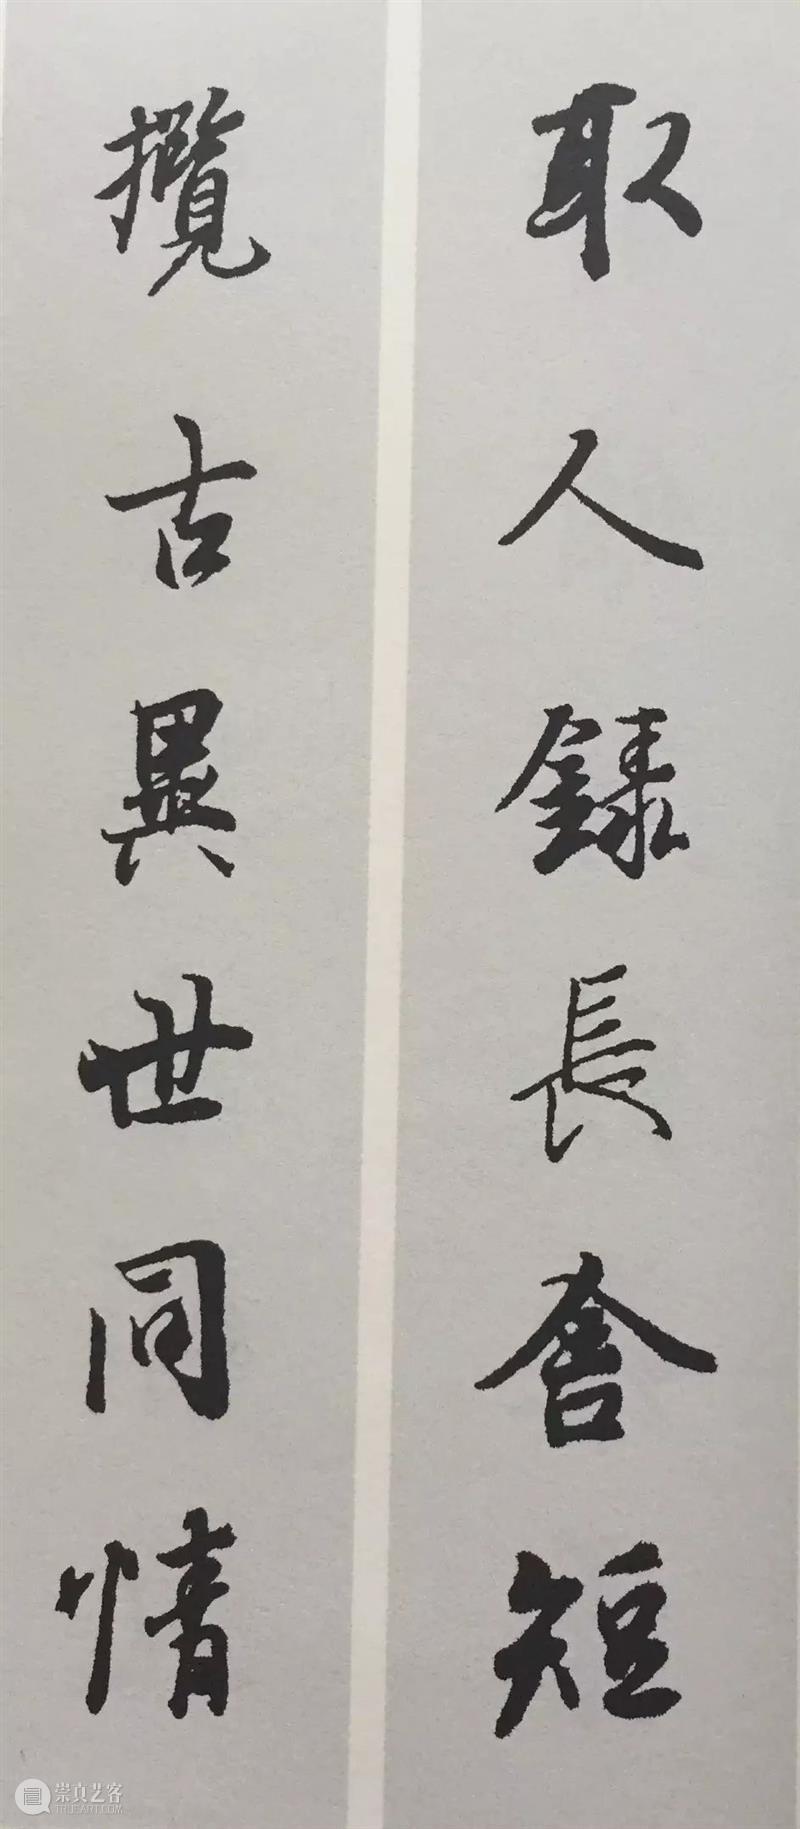 取人録長舍短
攬古異世同情
崇真艺客
TRUEART.COM